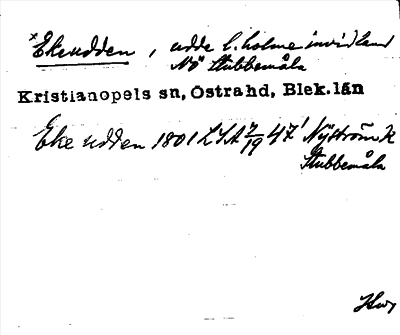 *Ekeudden, udde l. holme invid land
NÖ Stubbemåla
Kristianopels sn, Östrahd, Blek.län
Eke udden 1801 LSA 7/19 47' Nyström K
Stubbemåla